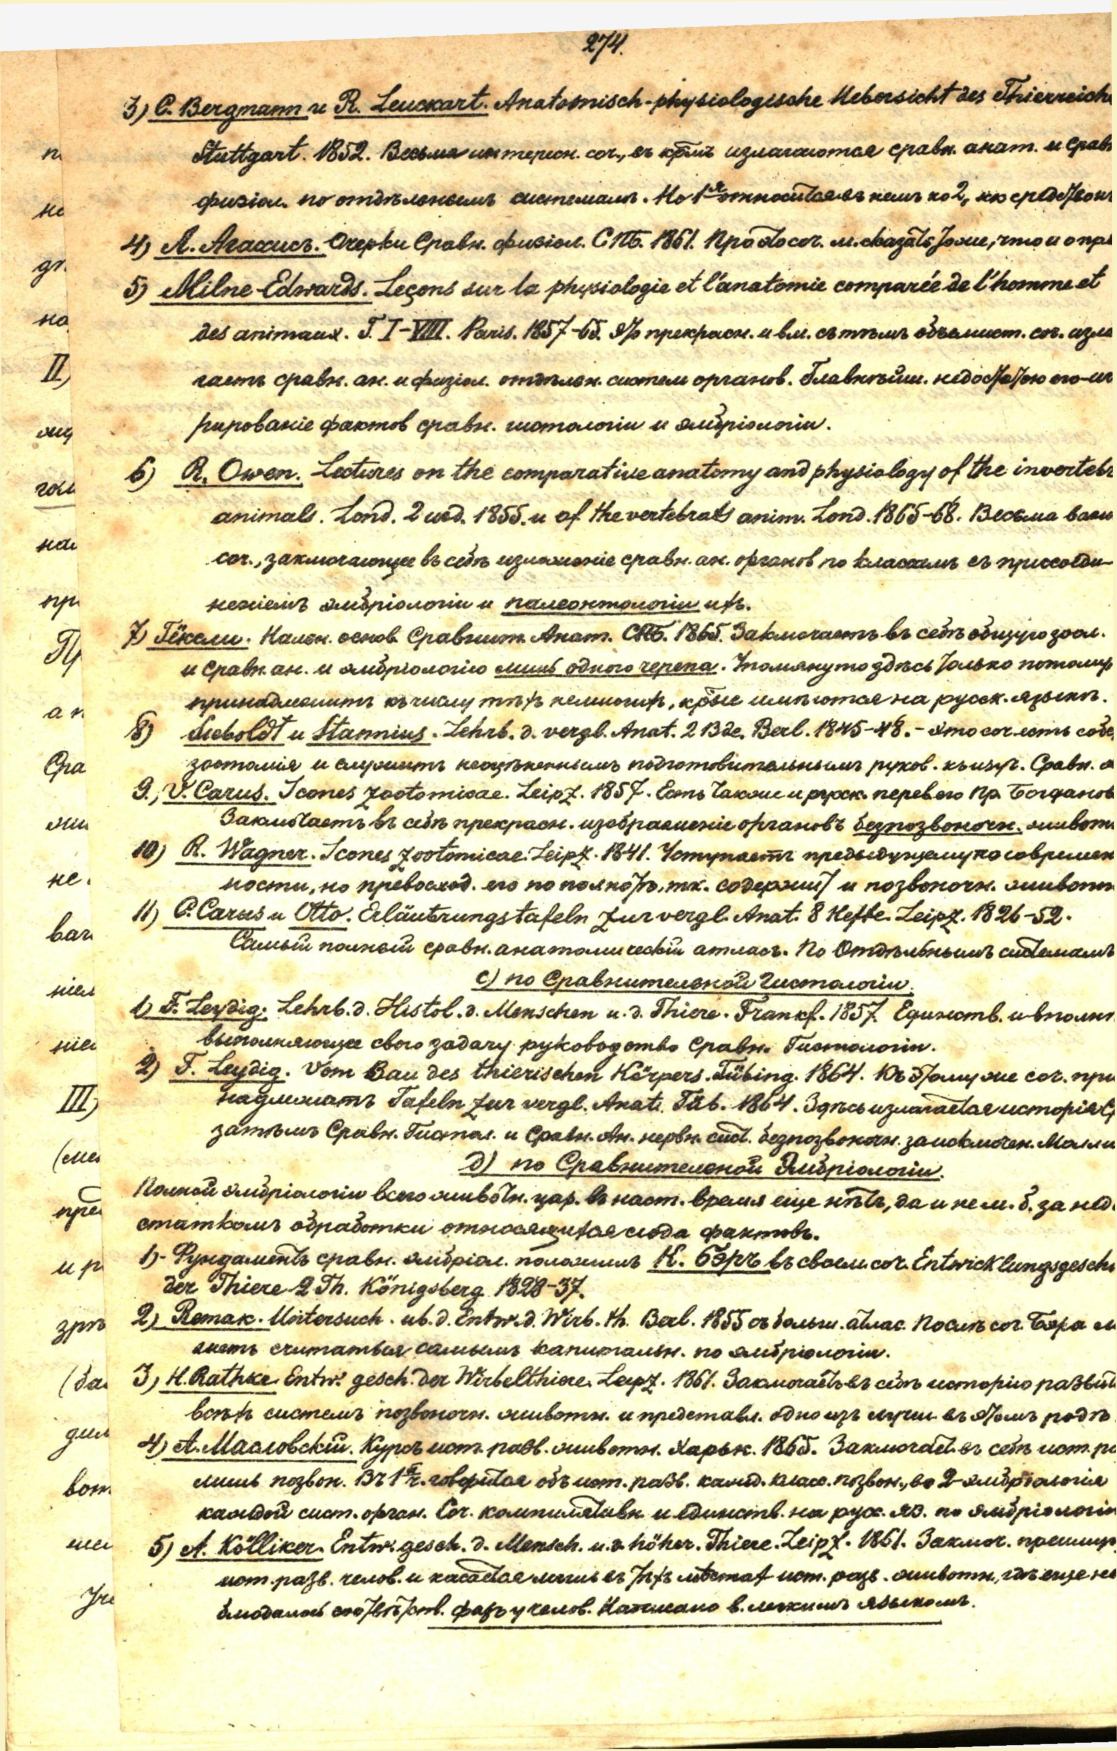 274.
3) C. Bergmann и R. Leuckart. Anatomisch-physiologische Uebersicht des Thierreichs
Stuttgart. 1852. Весьма интересн. соч., въ кᲂтмъ излагаются сравн. анат. и сравн
физіол. по отдѣльнымъ системамъ. Но 1ая относится въ немъ ко 2,
4) Л. Агассисъ. Очерки Сравн. физіол. СПБ. 1861. Про это соч. м. сказать тоже, что и о пре
5) Milne-Edwards. Leçons sur la physiologie et l'anatomie comparée de l'homme et
des animaux. T. I-VIII. Paris. 1857-65. Это прекрасн. и вм. съ тѣмъ объемист. соч. изла
гаетъ сравн. ан. и физіол. отдѣлен. систем органов. Главнѣйш. недостатокъ его-иг
рированіе фактов сравн. гистологіи и эмбріологіи.
6) R. Owen. Lectures on the comparative anatomy and physiology of the invertebr
animals. Lond. 2 изд. 1855. и of the vertebrats anim. Lond. 1865-68. Весьма важн
соч., заключающее въ себѣ изложеніе сравн. ан. органов по классамъ съ присоеди-
неніемъ эмбріологіи и палеонтологіи ихъ.
7) Гёксли. Начен. основ. Сравнит. Анат. СПБ. 1865. Заключаетъ въ себѣ общую зоол.
и сравн. ан. и эмбріологію лишь одного черепа. Упомянуто здѣсь только потому
принадлежитъ къ числу тѣхъ немногихъ, кᲂтые имѣются на русск. языкѣ.
8) Sieboldt и Stannius. Lehrb. d. vergl. Anat. 2 Bde. Berl. 1845-48. - Это соч. есть собс
зоотомія и служитъ неоцѣненнымъ подготовительнымъ руков. къ изуч. Сравн. а
9.) V. Carus. Icones zootomicae. Leipz. 1857. Есть также и русск. перев. его Пр. Богданов
Заключаетъ въ себѣ прекрасн. изображеніе органовъ безпозвоночн. животн
10) R. Wagner. Icones zootomicae. Leipz. 1841. Уступаетъ предыдущему по современ
ности, но превосход. его по полнотѣ, т.к. содержит и позвоночн. животн
11) C. Carus и Otto. Erläutrungstafeln zur vergl. Anat. 8 Hefte. Leipz. 1826-52.
Самый полный сравн. анатомическій атласъ. По Отдѣльнымъ системамъ
c) по Сравнительной Гистологіи.
1) F. Leydig. Lehrb. d. Histol. d. Menschen u. d. Thiere. Frankf. 1857. Единств. и вполн
выполняющее свою задачу руководство Сравн. Гистологіи.
2) F. Leydig. Vom Bau des thierischen Körpers. Tübing. 1864. Къ этому же соч. при
надлежатъ Tafeln zur vergl. Anat. Tüb. 1864. Здѣсь излагается исторія С
затѣмъ Сравн. Гистол. и Сравн. Ан. нервн. сист. безпозвоночн. за исключен. Молл
d) по Сравнительной Эмбріологіи.
Полной эмбріологіи всего животн. цар. въ наст. время еще нѣтъ, да и не м. б. за недо
статкомъ обработки относящихся сюда фактовъ.
1) Фундаментъ сравн. эмбріол. положилъ К. Бэръ въ своем соч. Entwicklungsgesch
der Thiere 2 Th. Königsberg 1828-37.
2) Remak. Untersuch. üb. d. Entw. d. Wirb. th. Berl. 1855 съ больш. атлас. Послѣ соч. Бэра м
жетъ считаться самымъ капитальн. по эмбріологіи.
3) H. Rathke. Entw. gesch. der Wirbelthiere. Leipz. 1861. Заключаетъ въ себѣ исторію развит
всѣхъ системъ позвоночн. животн. и представл. одно изъ лучш. въ этомъ родѣ
4) А. Масловскій. Курсъ ист. разв. животн. Харьк. 1865. Заключает. въ себѣ ист. ра
лишь позвон. Въ 1й ч. говорится объ ист. разв. кажд. класс. позвон., во 2-эмбріологія
каждой сист. орган. Соч. компилятивн. и единств. на русс. яз. по эмбріологіи
5) A. Kölliker. Entw. gesch. d. Mensch. u. d. höher. Thiere. Leipz. 1861. Заключ. преимущ
ист. разв. челов. и касается лишь въ тѣхъ ист. разв. животн., гдѣ еще не
блюдались соотвѣтств. фазъ у челов. Написано в. легкимъ языкомъ.